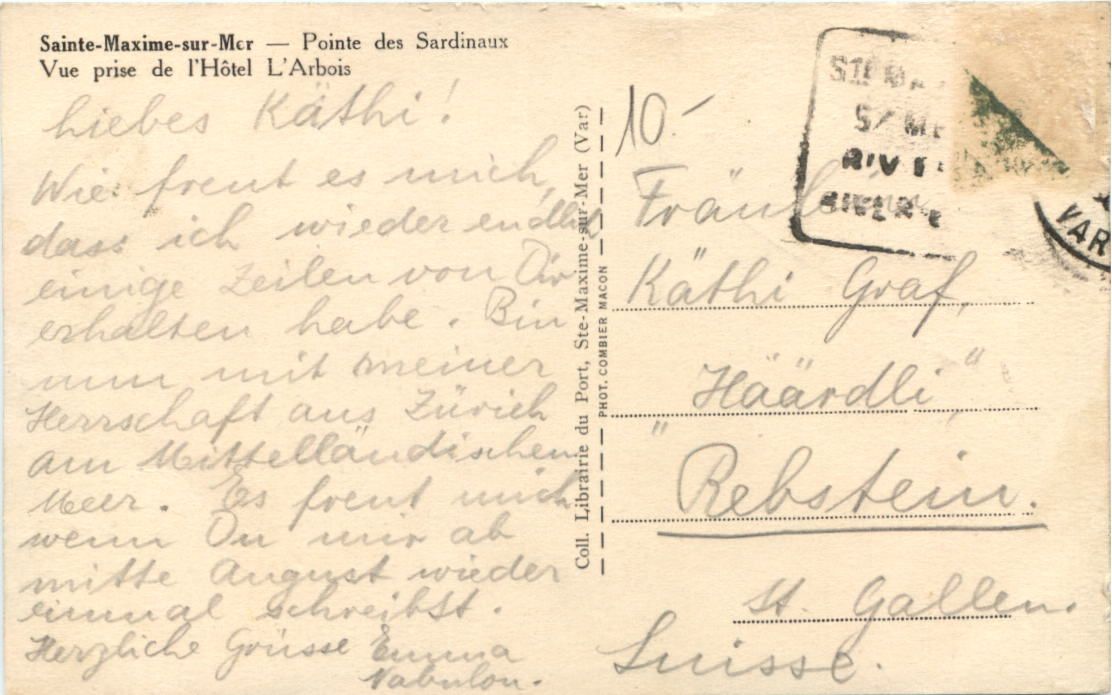 Sainte-Maxime-sur-Mer — Pointe des Sardinaux
Vue prise de l'Hôtel L'Arbois
Liebes Käthi!
Wie freut es mich,
dass ich wieder endlich
einige Zeilen von Dir
erhalten habe. Bin
nun mit meiner
Herrschaft aus Zürich
am Mittelländischen
Meer. Es freut mich
wenn Du mir ab
mitte August wieder
einmal schreibst.
Herzliche Grüsse Emma
Nabulon.
Coll. Librairie du Port, Ste-Maxime-sur-Mer (Var)
PHOT. COMBIER MACON
10.-
STE MA
S/ ME
RIV
HIVER
VAR
Fräulein
Käthi Graf,
"Häärdli"
Rebstein.
St. Gallen.
Suisse.